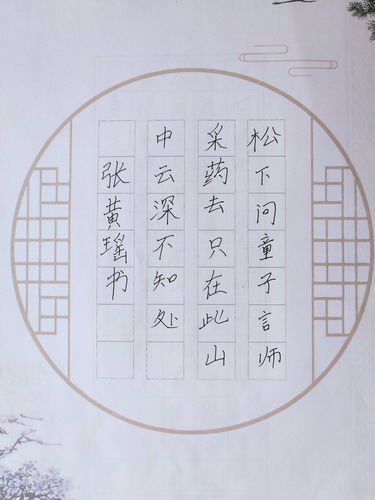 松下问童子言师
采药去只在此山
中云深不知处
张黄瑶书